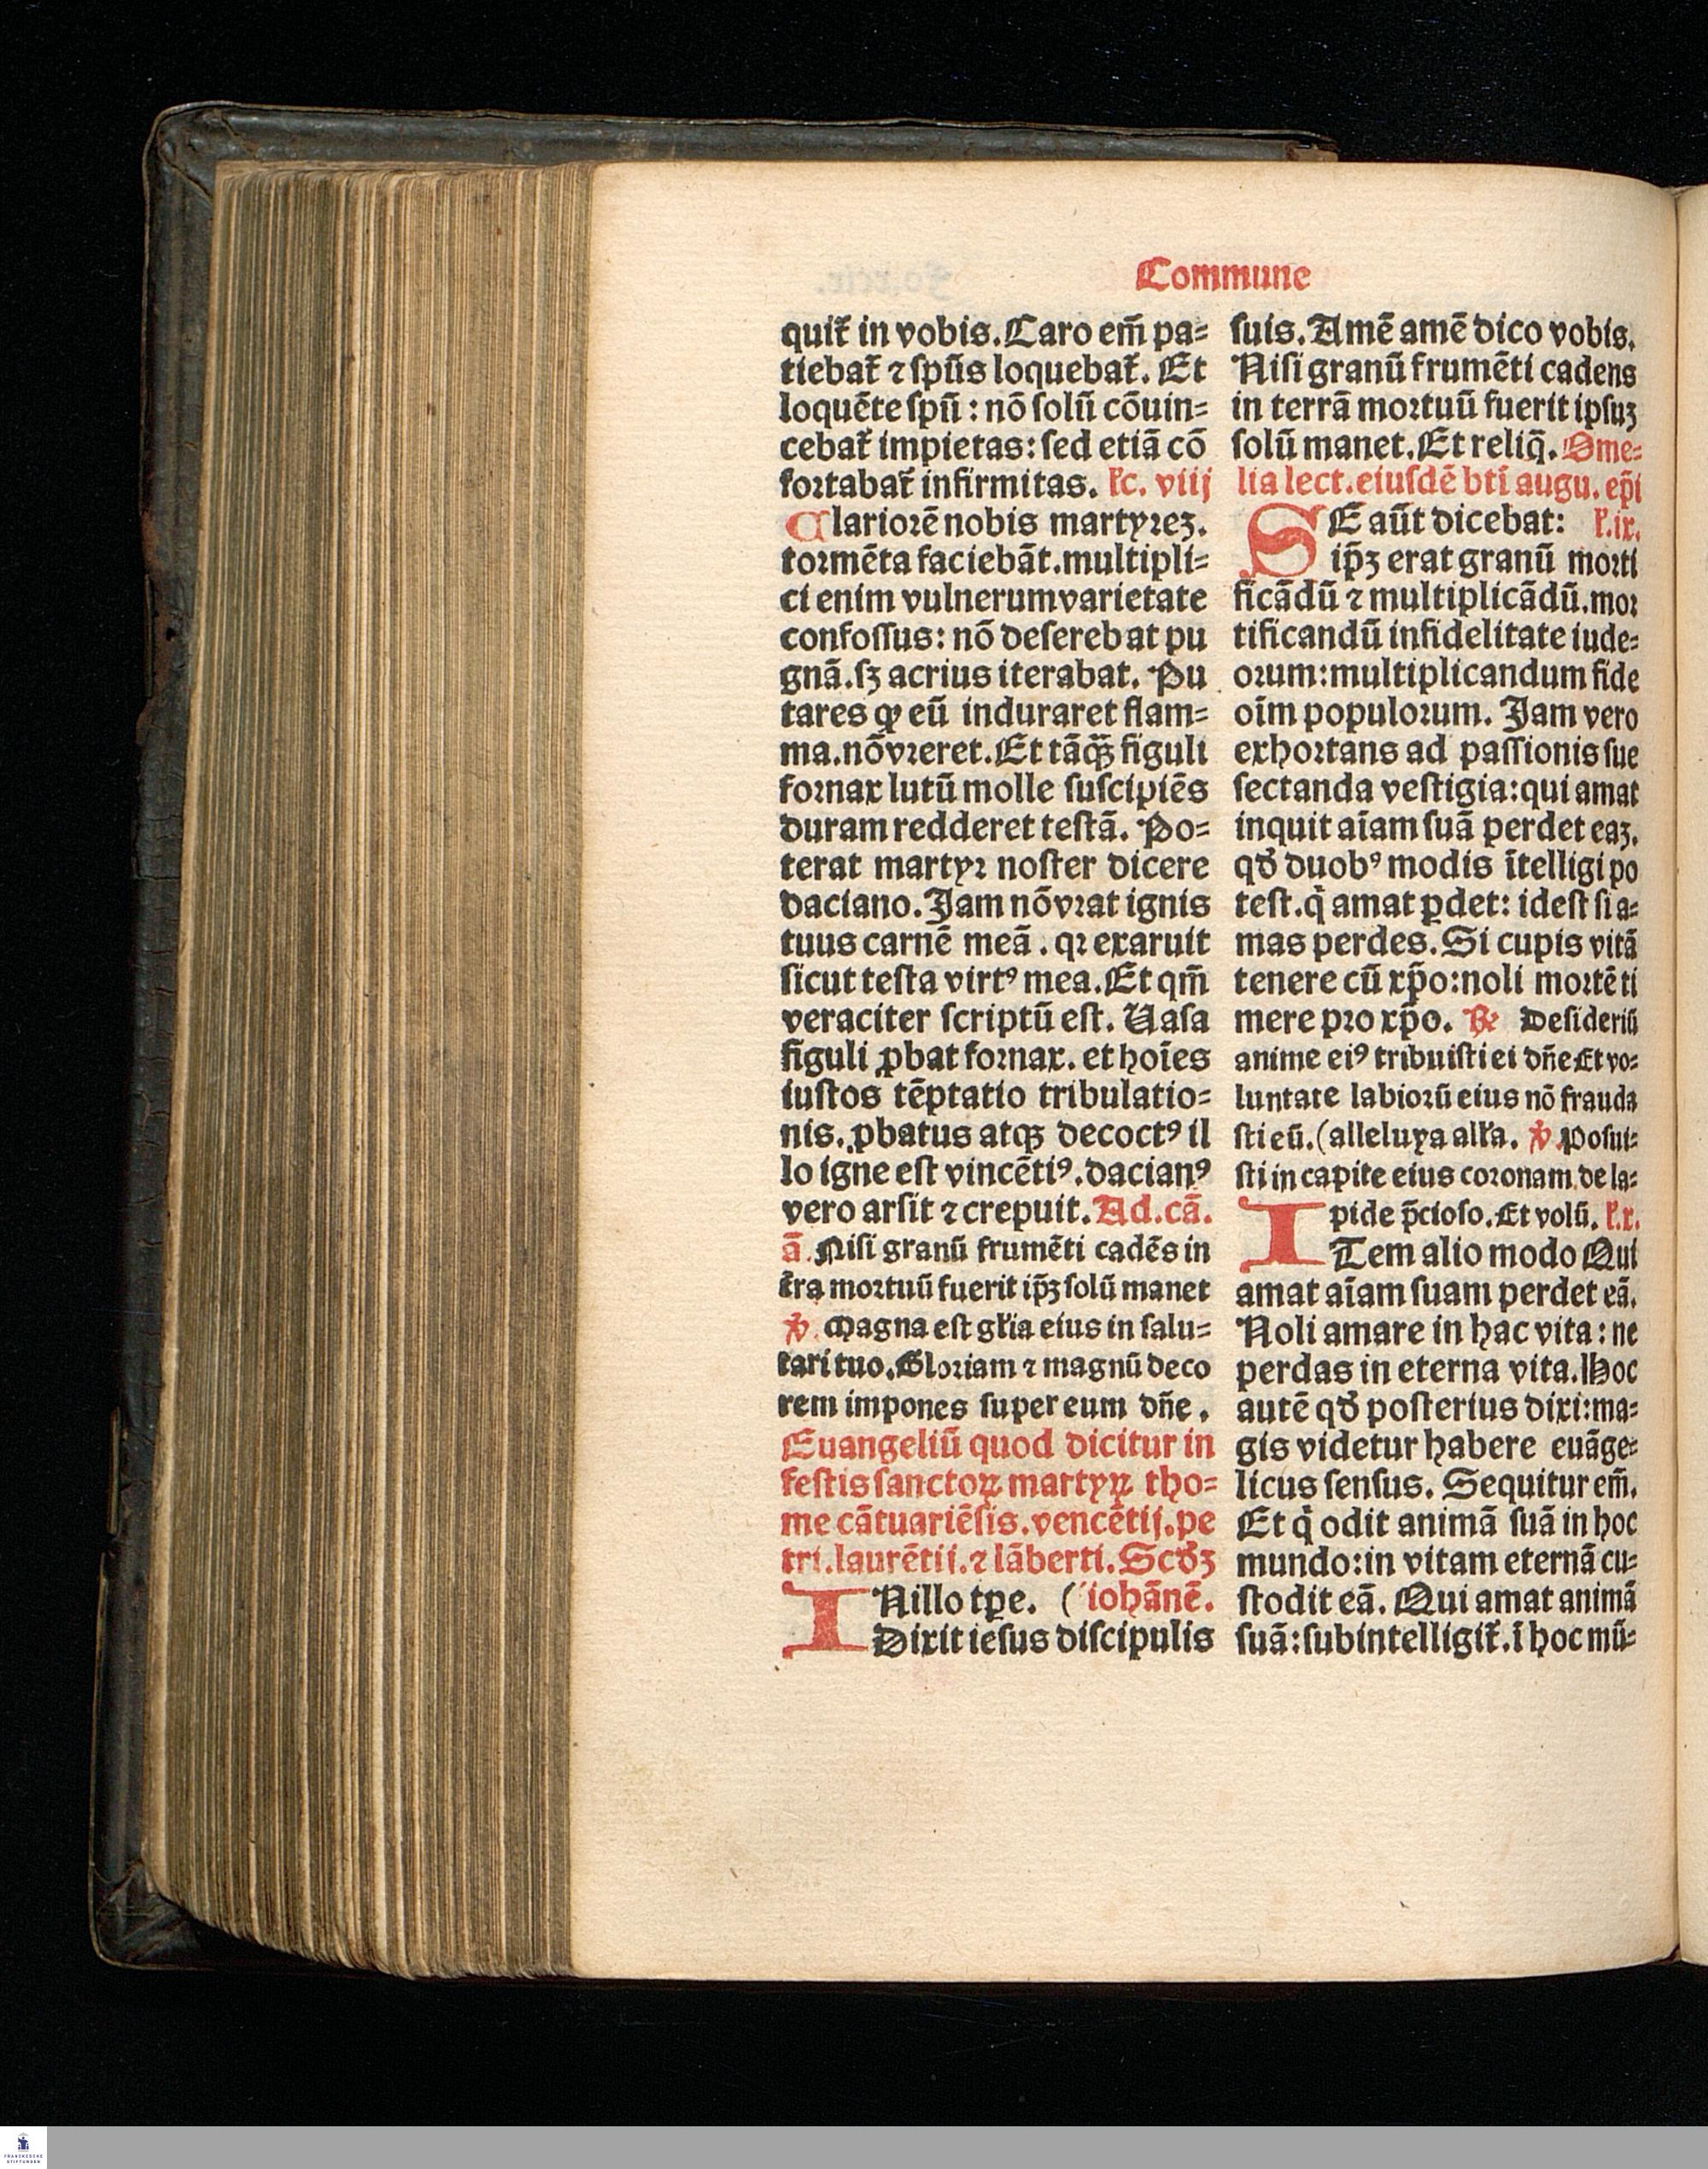 Commune
quit̃ in vobis. Caro em̃ pa⸗
tiebat̃ ⁊ ſpūs loquebat̃. Et
loquēte ſpū : nō ſolū cōuin⸗
cebat̃ impietas: ſed etiā cō
fortabat̃ infirmitas. łc. viij
Clariorē nobis martyꝛeꝫ.
toꝛmēta faciebāt. multipli⸗
ci enim vulnerum varietate
confoſſus: nō deſerebat pu
gnā. ſꝫ acrius iterabat. Pu
tares ꝙ eū induraret flam⸗
ma. nō vꝛeret. Et tāqȝ̈ figuli
foꝛnax lutū molle ſuſcipiēs
duram redderet teſtā. Po⸗
terat martyꝛ noſter dicere
daciano. Jam nō vꝛat ignis
tuus carnē meā. qꝛ exaruit
ſicut teſta virtꝰ mea. Et qm̃
veraciter ſcriptū eſt. Uaſa
figuli ꝓbat foꝛnax. et hoīes
iuſtos tēptatio tribulatio⸗
nis. ꝓbatus atqꝫ decoctꝰ il
lo igne eſt vincētiꝰ. dacianꝰ
vero arſit ⁊ crepuit. Ad. cā.
ā. Niſi granū frumēti cadēs in
t̃ra moꝛtuū fuerit ip̄ꝫ ſolū manet
℣. Magna eſt głia eius in ſalu⸗
tari tuo. Gloꝛiam ⁊ magnū deco
rem impones ſuper eum dñe.
Euangeliū quod dicitur in
feſtis ſanctoꝝ martyꝝ tho⸗
me cātuariēſis. vencētij. pe
tri. laurētii. ⁊ lāberti. Scd̃ꝫ
IN illo tꝑe. ( iohānē.
Dixit ieſus diſcipulis
ſuis. Amē amē dico vobis.
Niſi granū frumēti cadens
in terrā moꝛtuū fuerit ipſuꝫ
ſolū manet. Et reliq̄. Ome⸗
lia lect. eiuſdē btī augu. ep̄i
SE aūt dicebat: ł. ix.
ip̄ꝫ erat granū moꝛti
ficādū ⁊ multiplicādū. moꝛ
tificandū infidelitate iude⸗
oꝛum: multiplicandum fide
oīm populoꝛum. Jam vero
exhoꝛtans ad paſſionis ſue
ſectanda veſtigia: qui amat
inquit aīam ſuā perdet eaꝫ.
qd̃ duobꝰ modis ītelligi po
teſt. q̇ amat ꝑdet: ideſt ſi a⸗
mas perdes. Si cupis vitā
tenere cū xp̄o: noli moꝛtē ti
mere pꝛo xp̄o. ℟ Deſideriū
anime eiꝰ tribuiſti ei dñe Et vo⸗
luntate labioꝛū eius nō frauda
ſti eū. (alleluya alła. ℣. Poſui⸗
ſti in capite eius coꝛonam de la⸗
pide p̄cioſo. Et volū. ł. x.
ITem alio modo Qui
amat aīam ſuam perdet eā.
Noli amare in hac vita : ne
perdas in eterna vita. Hoc
autē qd̃ poſterius dixi: ma⸗
gis videtur habere euāge⸗
licus ſenſus. Sequitur em̃.
Et q̇ odit animā ſuā in hoc
mundo: in vitam eternā cu⸗
ſtodit eā. Qui amat animā
ſuā: ſubintelligit̃. ī hoc mū⸗
FRANCKESCHE
STIFTUNGEN